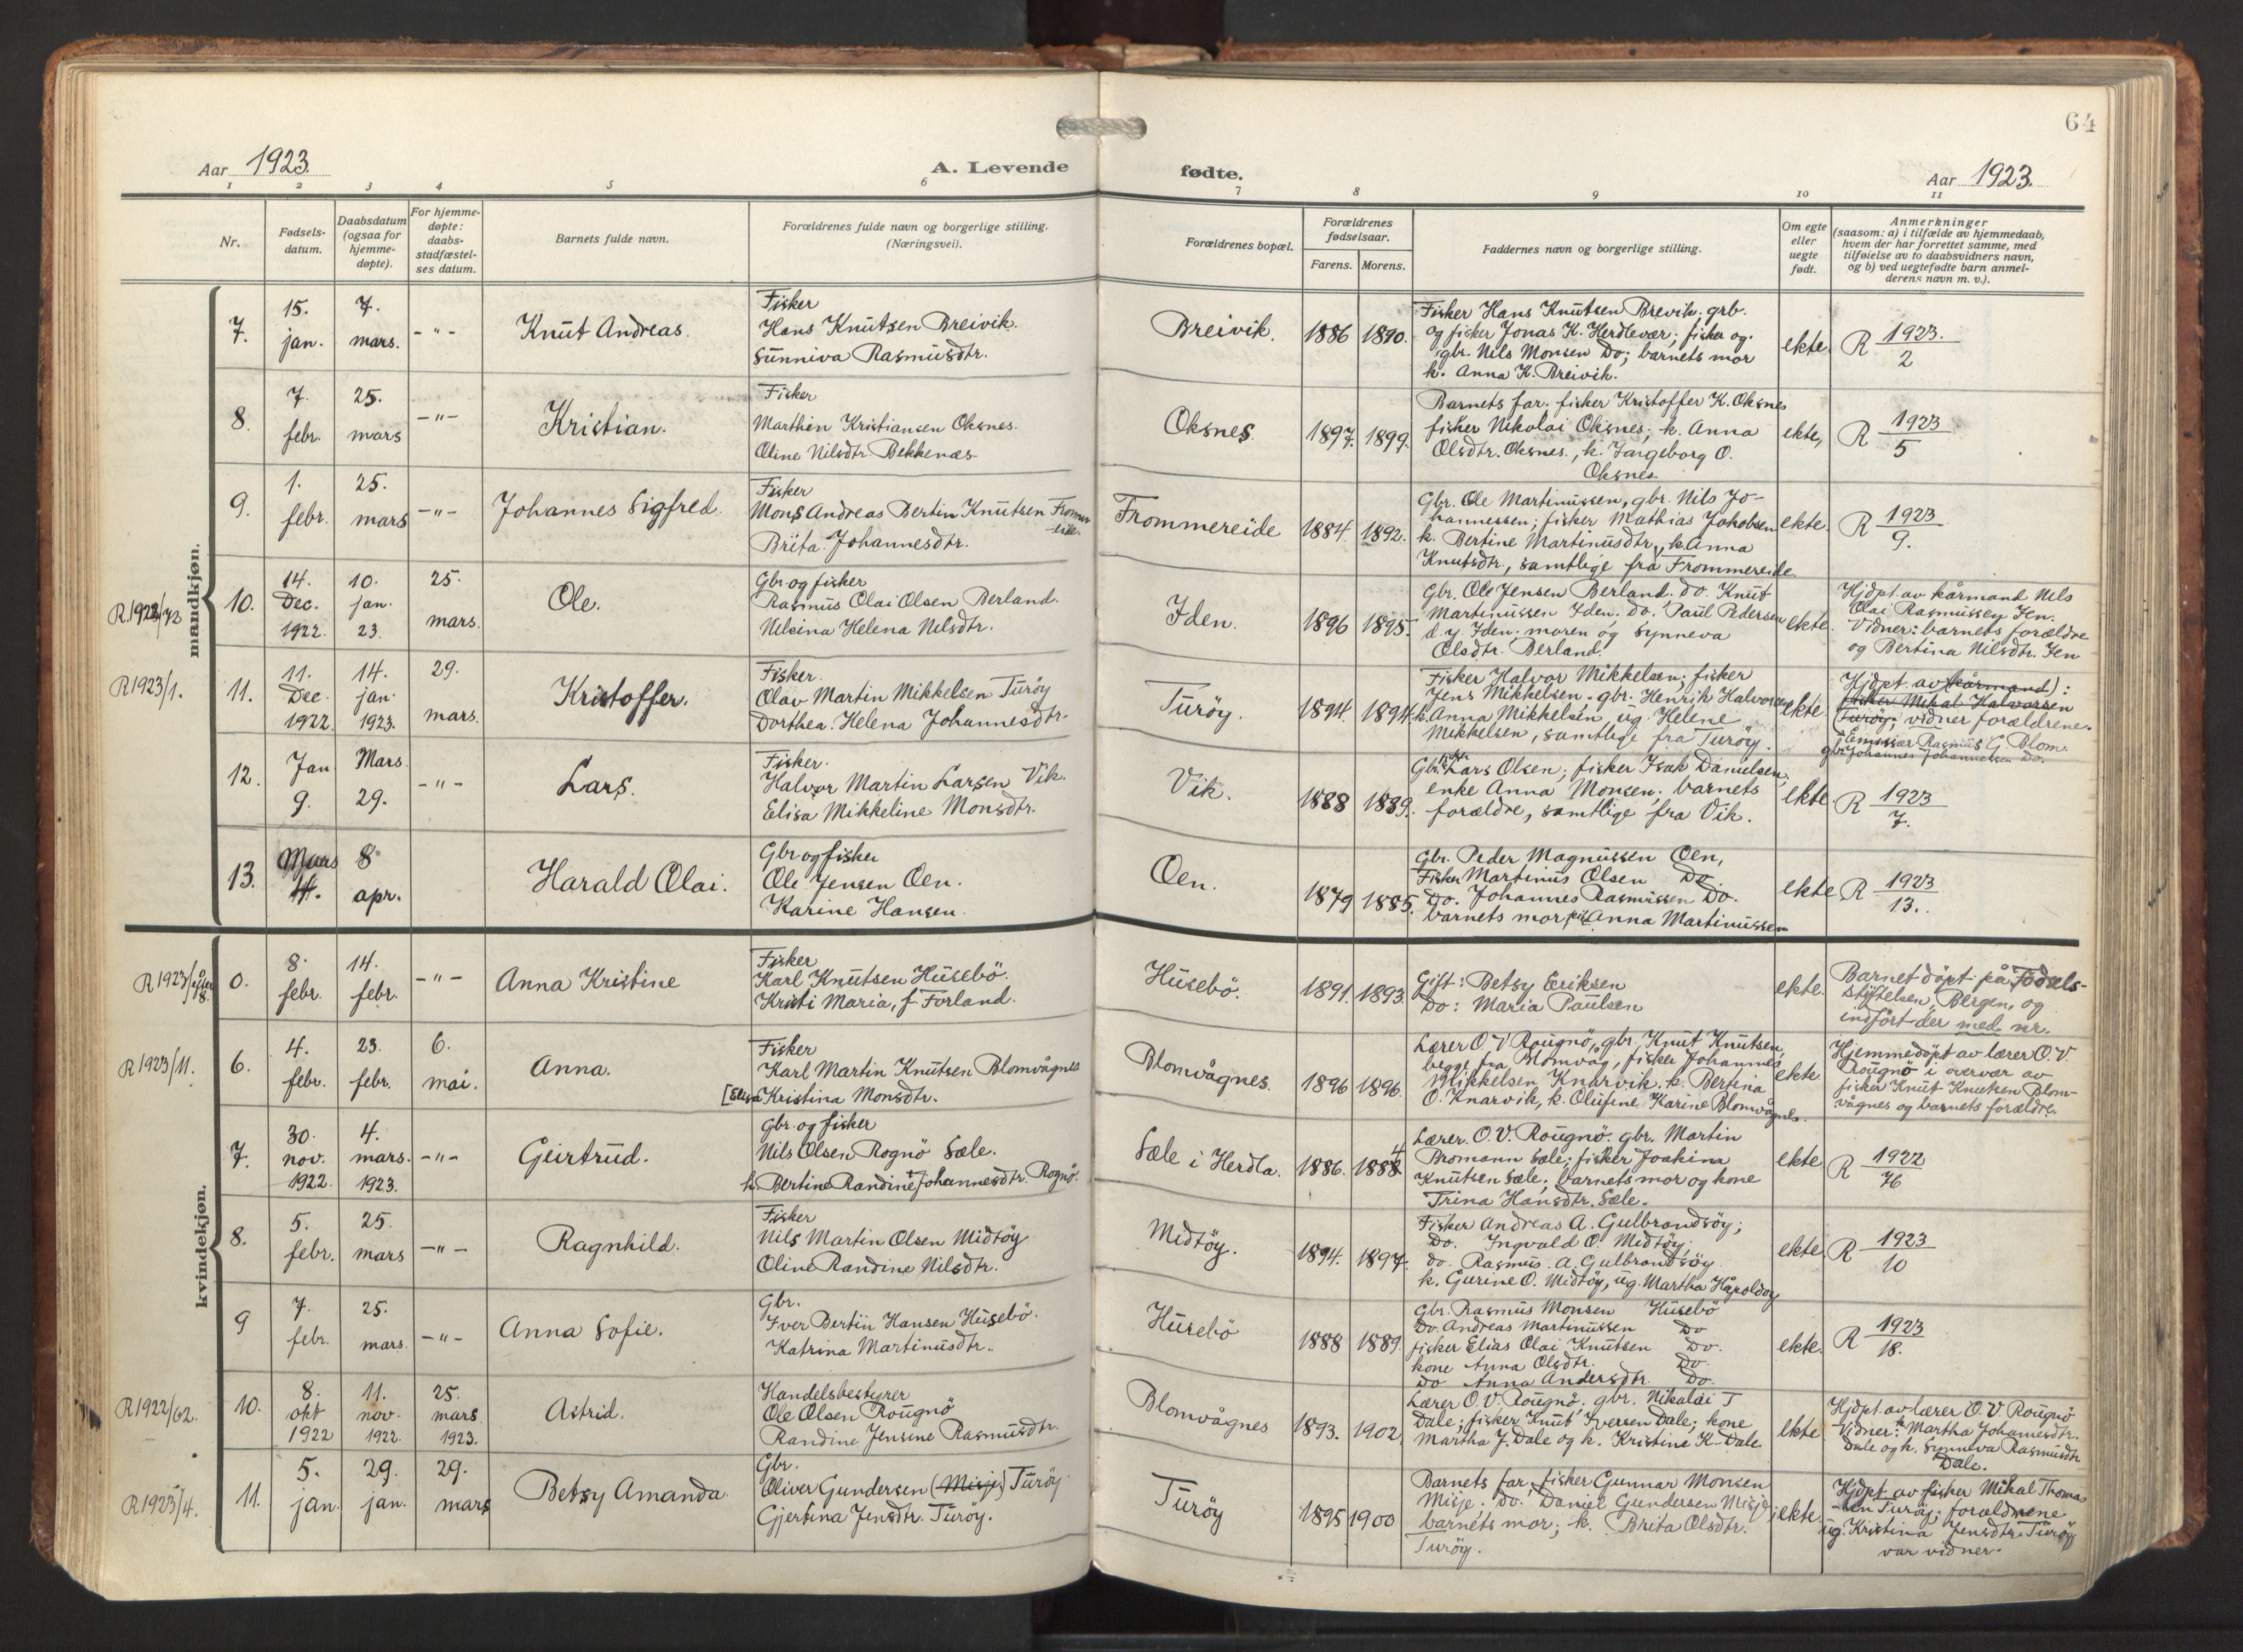 64
Aar 1923.
A. Levende
fødte.
Aar 1923.
1 2 3 4 5 6 7 8 9 10 11
Nr.
Fødsels-
datum.
Daabsdatum
(ogsaa for
hjemme-
døpte).
For hjemme-
døpte:
daabs-
stadfæstel-
ses datum.
Barnets fulde navn.
Forældrenes fulde navn og borgerlige stilling.
(Næringsvei).
Forældrenes bopæl.
Forældrenes
fødselsaar.
Farens. Morens.
Faddernes navn og borgerlige stilling.
Om egte
eller
uegte
født.
Anmerkninger
(saasom: a) i tilfælde av hjemmedaab,
hvem der har forrettet samme, med
tilføielse av to daabsvidners navn,
og b) ved uegtefødte barn anmel-
derens navn m. v.).
mandkjøn.
7.
15.
jan.
7.
mars.
-"-
Knut Andreas.
Fisker
Hans Knutsen Breivik.
Sunniva Rasmusdtr.
Breivik.
1886 1890.
Fisker Hans Knutsen Brevik; grb.
og fisker Jonas K. Herdlevær; fisker og
gbr. Nils Monsen Do; barnets mor
k. Anna K. Breivik.
ekte.
R 1923.
2
8.
7.
febr.
25.
mars
-"-
Kristian.
Fisker
Marthin Kristiansen Oksnes.
Oline Nilsdtr. Bekkenæs.
Oksnes
1897. 1899.
Barnets far. fisker Kristoffer K. Oksnes
fisker Nikolai Oksnes; k. Anna
Olsdtr. Oksnes., k. Ingeborg O.
Oksnes
ekte,
R 1923
5
9.
1.
febr.
25.
mars
-"-
Johannes Sigfred.
Fisker
Mons Andreas Bertin Knutsen Frommer
-eide.
Brita Johannesdtr.
Frommereide
1884. 1892.
Gbr. Ole Martinussen, gbr. Nils Jo-
hannessen; fisker Mathias Jakobsen
k. Bertine Martinusdtr, k. Anna
Knutsdtr., samtlige fra Frommereide
ekte.
R 1923
9.
R 1922/72
10.
14.
Dec.
1922.
10.
jan.
23.
25.
mars.
Ole.
Gbr. og fisker
Rasmus Olai Olsen Berland.
Nilsina Helena Nilsdtr.
Iden.
1896 1895.
Gbr. Ole Jensen Berland. do. Knut
Martinussen Iden; do. Paul Pedersen
d.y. Iden; moren og Synneva
Olsdtr. Berland.
ekte.
Hjdpt. av kårmand Nils
Olai Rasmussen Jen.
Vidner: barnets forældre
og Bertina Nilsdtr. Jen
R 1923/1.
11.
11.
Dec.
1922
14.
jan.
1923.
29.
mars.
Kristoffer.
Fisker.
Olav Martin Mikkelsen Turöy
Dorthea Helena Johannesdtr.
Turöy.
1894. 1894.
Fisker Halvor Mikkelsen; fisker
Jens Mikkelsen, gbr. Henrik Halvorsen
k. Anna Mikkelsen, ug. Helene
Mikkelsen, samtlige fra Turöy.
ekte.
Hjdpt. av (kårmand):
fisker Mikal Halvorsen
Turöy; vidner forældrene.
Emissær Rasmus G Blom.
gbr. Johannes Johannessen Do.
12.
Jan
9.
Mars
29.
-"-
Lars.
Fisker.
Halvor Martin Larsen Vik.
Elisa Mikkeline Monsdtr.
Vik.
1888 1889.
Gbr. Lars Olsen; fisker Isak Danielsen;
enke Anna Monsen; barnets
forældre, samtlige fra Vik.
ekte
R 1923
7.
13.
Mars
4.
8
apr.
Harald Olai.
Gbr og fisker
Ole Jensen Oen.
Karine Hansen.
Oen.
1879 1885.
Gbr. Peder Magnussen Oen,
Fisker Martinus Olsen Do.
Do. Johannes Rasmussen Do.
barnets mor, Anna Martinussen
ekte
R 1923
13.
kvindekjøn.
R 1923/efter 8.
0.
8.
febr.
14.
febr.
-"-
Anna Kristine
Fisker
Karl Knutsen Husebö.
Kristi Maria, f. Forland.
Husebö.
1891. 1893.
Gift: Betsy Eriksen
Do: Maria Paulsen
ekte.
Barnet döpt på Födsels-
stiftelsen, Bergen, og
indfört der med nr.
R 1923/11.
6.
4.
febr.
23.
febr.
6.
mai.
Anna.
Fisker
Karl Martin Knutsen Blomvågnes
[Elisa Kristina Monsdtr.
Blomvågnes.
1896 1896.
Lærer O V Rougnö, gbr. Knut Knutsen,
begge fra Blomvåg, fisker Johannes
Mikkelsen Knarvik. k. Bertina
O. Knarvik, k. Olufine Karine Blomvågnes.
ekte.
Hjemmedöpt av lærer O.V.
Rougnö i overvær av
fisker Knut Knutsen Blom-
vågnes og barnets forældre.
7.
30.
nov.
1922.
4.
mars.
1923.
-"-
Geirtrud.
Gbr. og fisker
Nils Olsen Rognö Sæle.
k. Bertine Randine Johannesdtr. Rognö.
Sæle i Herdla.
1886. 1888 4
Lærer. O.V. Rougnö. gbr. Martin
Bromann Sæle; fisker Joakim
Knutsen Sæle; barnets mor og kone
Trina Hansdtr. Sæle.
ekte
R 1922
76
8.
5.
febr.
25.
mars
-"-
Ragnhild.
Fisker
Nils Martin Olsen Midtöy
Oline Randine Nilsdtr.
Midtöy.
1894. 1897.
Fisker Andreas A. Gulbrandsöy;
Do. Ingvald O. Midtöy;
do. Rasmus. A. Gulbrandsöy
k. Gurine O. Midtöy, ug. Martha Håpoldöy
ekte.
R 1923
10
9
7.
febr.
25.
mars.
-"-
Anna Sofie.
Gbr.
Iver Bertin Hansen Husebö.
Katrina Martinusdtr.
Husebö
1888 1889.
Gbr. Rasmus Monsen Husebö
Do. Andreas Martinussen Do
fisker Elias Olai Knutsen Do.
kone Anna Olsdtr. Do.
Do Anna Andersdtr. Do.
ekte.
R 1923
18.
R 1922/62.
10.
8.
okt
1922
11.
nov.
1922.
25.
mars.
1923.
Astrid.
Handelsbestyrer
Ole Olsen Rougnö
Randine Jensine Rasmusdtr.
Blomvågnes
1893. 1902.
Lærer O.V. Rougnö. gbr. Nikolai T
Dale; fisker Knut Iversen Dale; kone
Martha J. Dale og k. Kristine K. Dale
ekte
Hjdpt. av lærer O.V. Rougnö
Vidner: k. Martha Johanesdtr.
Dale og k. Synneva Rasmusdtr
Dale.
R 1923/4.
11.
5.
jan.
29.
jan.
29.
mars
Betsy Amanda.
Gbr.
Oliver Gundersen (Misje) Turöy.
Gjertina Jensdtr. Turöy.
Turöy
1895 1900
Barnets far, fisker Gunnar Monsen
Misje; do. Daniel Gundersen Misje;
barnets mor; k. Brita Olsdtr.
Turöy.
ekte.
Hjdpt av fisker Mikal Thomas
-sen Turöy; forældrene
ug. Kristina Jensdtr. Turöy
var vidner.